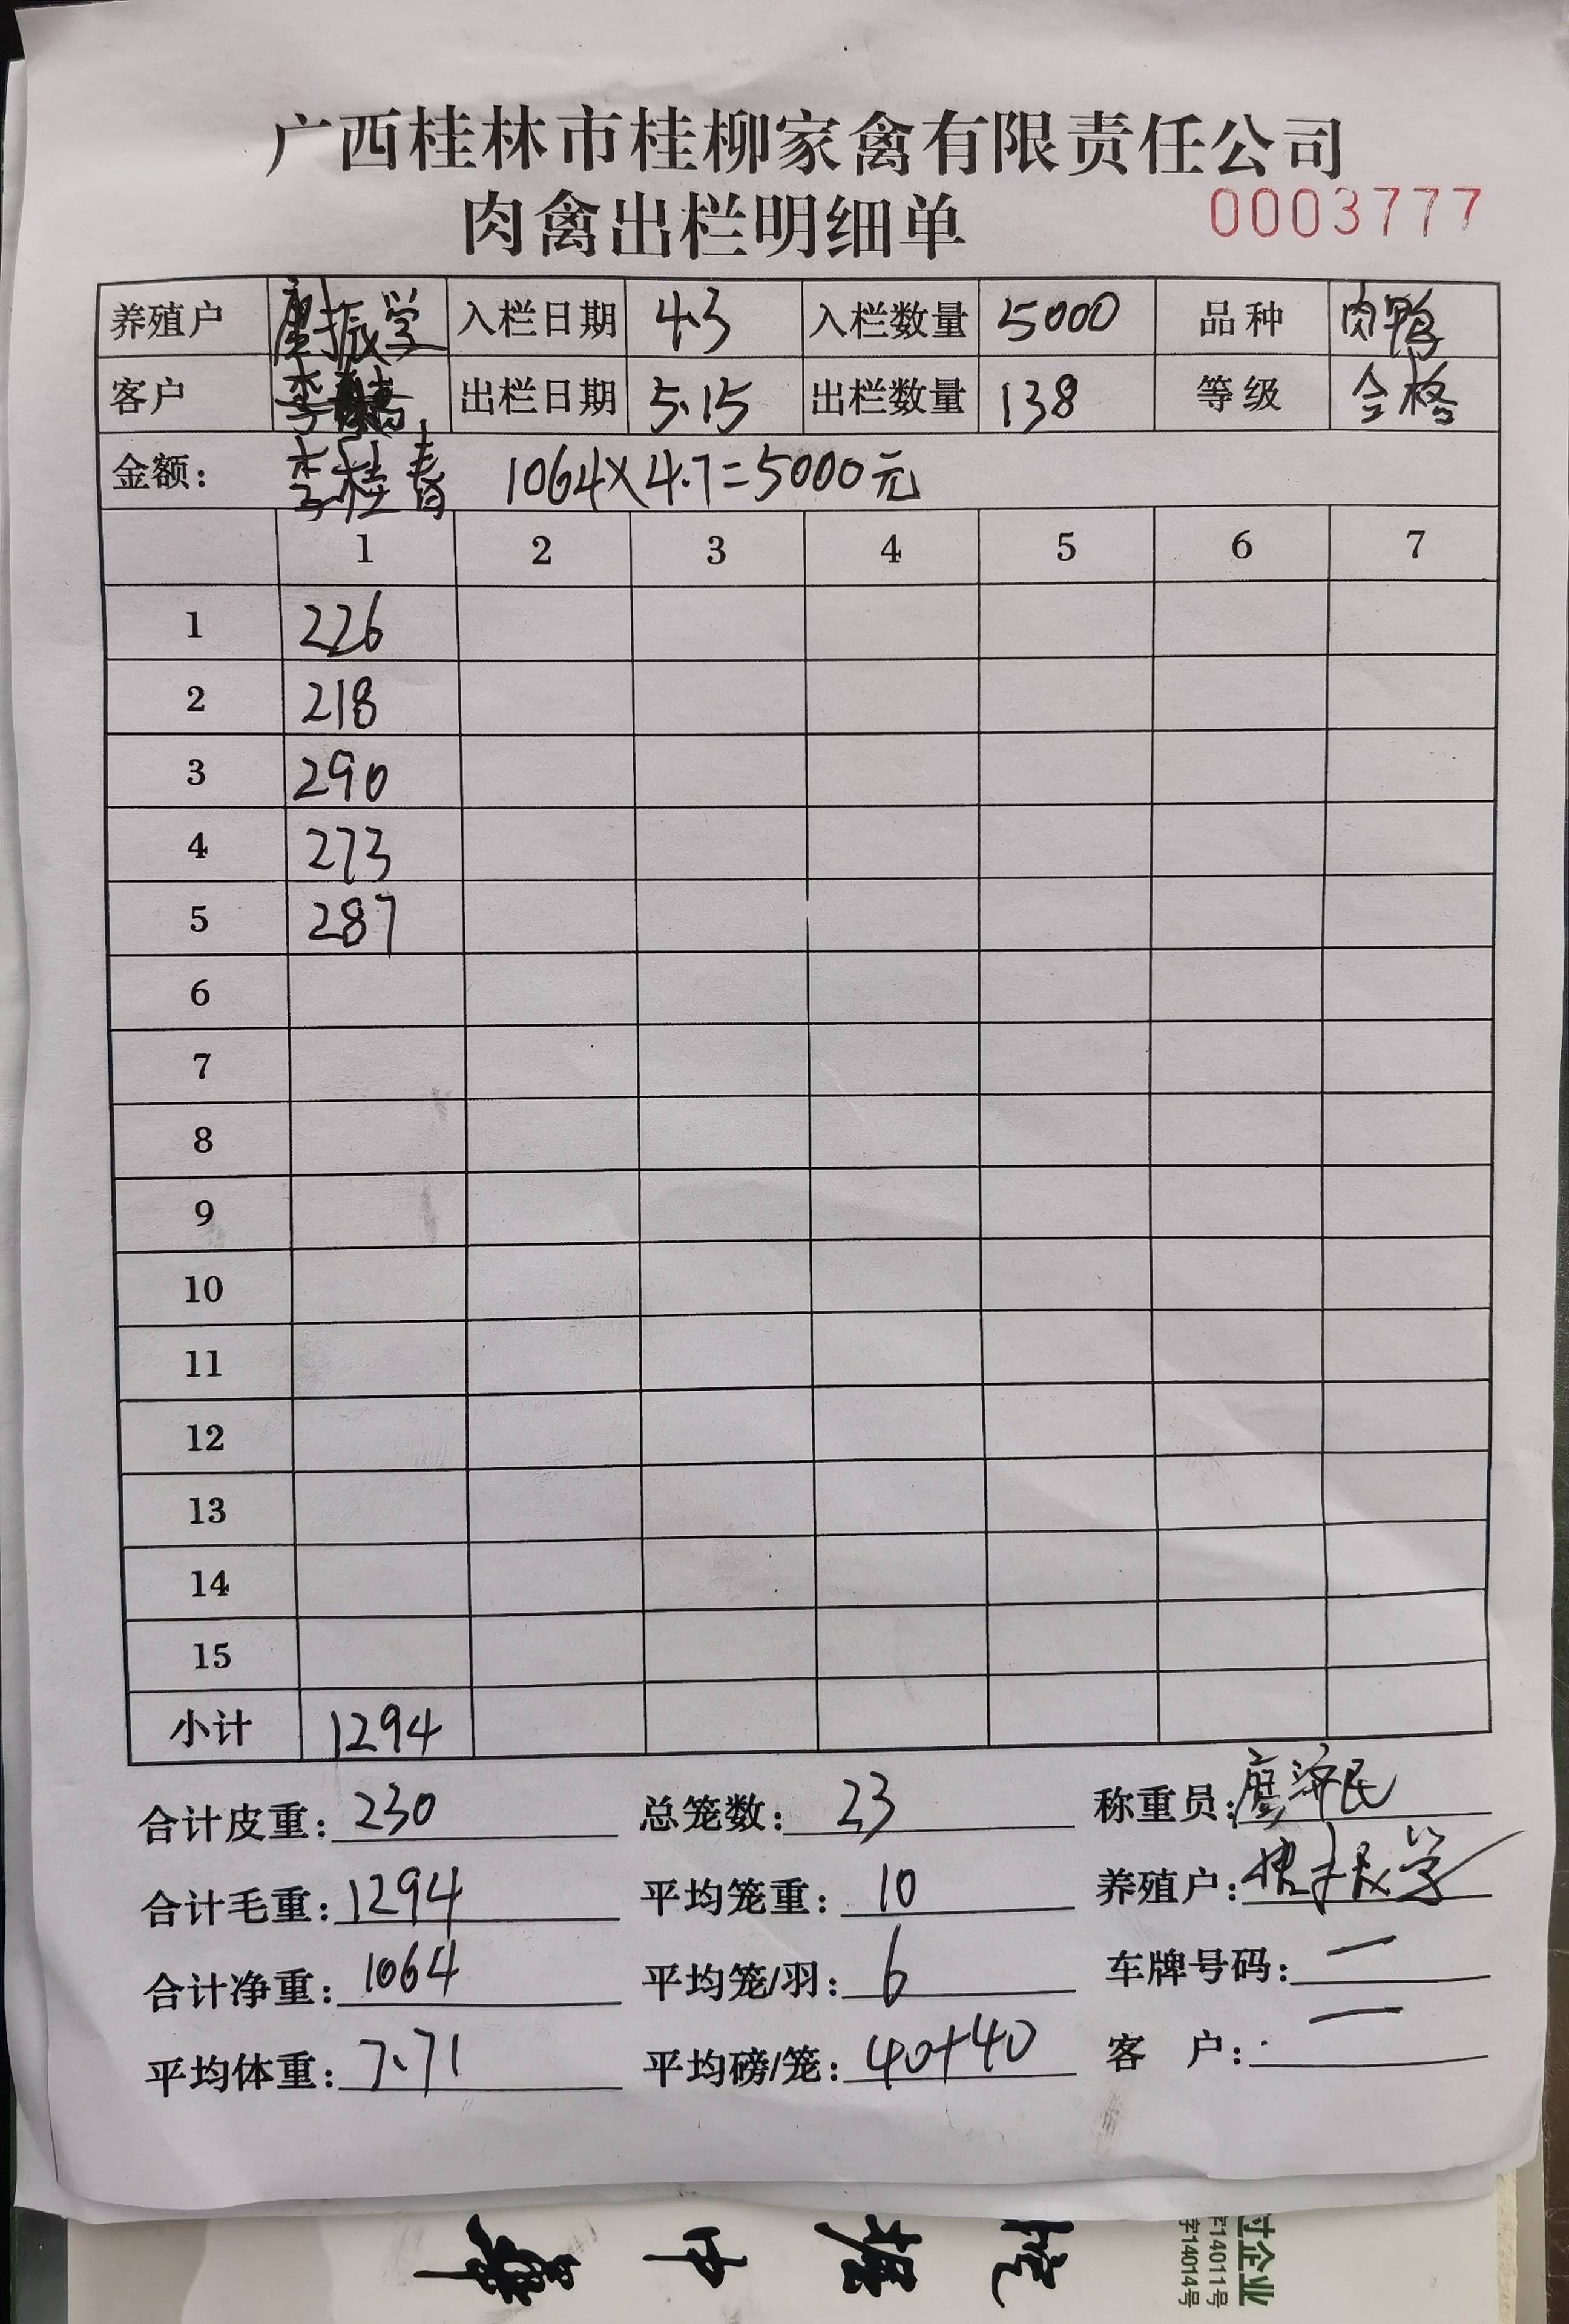 广西桂林市桂柳家禽有限责任公司
肉禽出栏明细单 0003777
养殖户 振学 入栏日期 4.3 入栏数量 5000 品种 肉鸭
客户 李 出栏日期 5.15 出栏数量 138 等级 合格
金额: 李桂春 1064×4.7=5000元
1 2 3 4 5 6 7
1 226
2 218
3 290
4 273
5 287
6
7
8
9
10
11
12
13
14
15
小计 1294
合计皮重: 230 总笼数: 23 称重员: 廖 民
合计毛重: 1294 平均笼重: 10 养殖户: 振学
合计净重: 1064 平均笼/羽: 6 车牌号码: 一
平均体重: 7.71 平均磅/笼: 40+40 客 户: 一
过企业
字14011号
字14014号